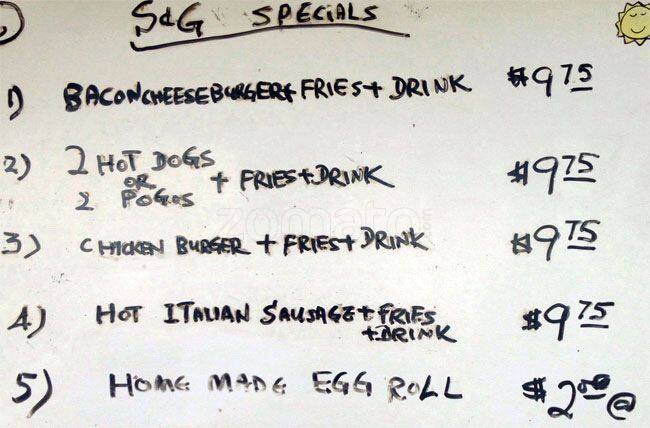 S&G SPECIALS
1) BACONCHEESEBURGER+ FRIES+ DRINK $9 75
2) 2 HOT DOGS OR 2 POGOS + FRIES+DRINK $9 75
zomato
3) CHICKEN BURGER + FRIES+ DRINK $9 75
4) HOT ITALIAN SAUSAGE + FRIES $9 75
+DRINK
5) HOME MADE EGG ROLL $2.00 @